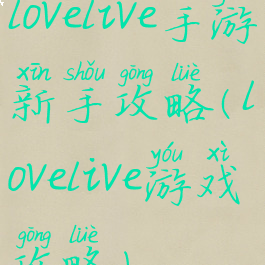 lovelive手游
xīn shǒu gōng lüè
新手攻略(l
yóu xì
ovelive游戏
gōng lüè
攻略)